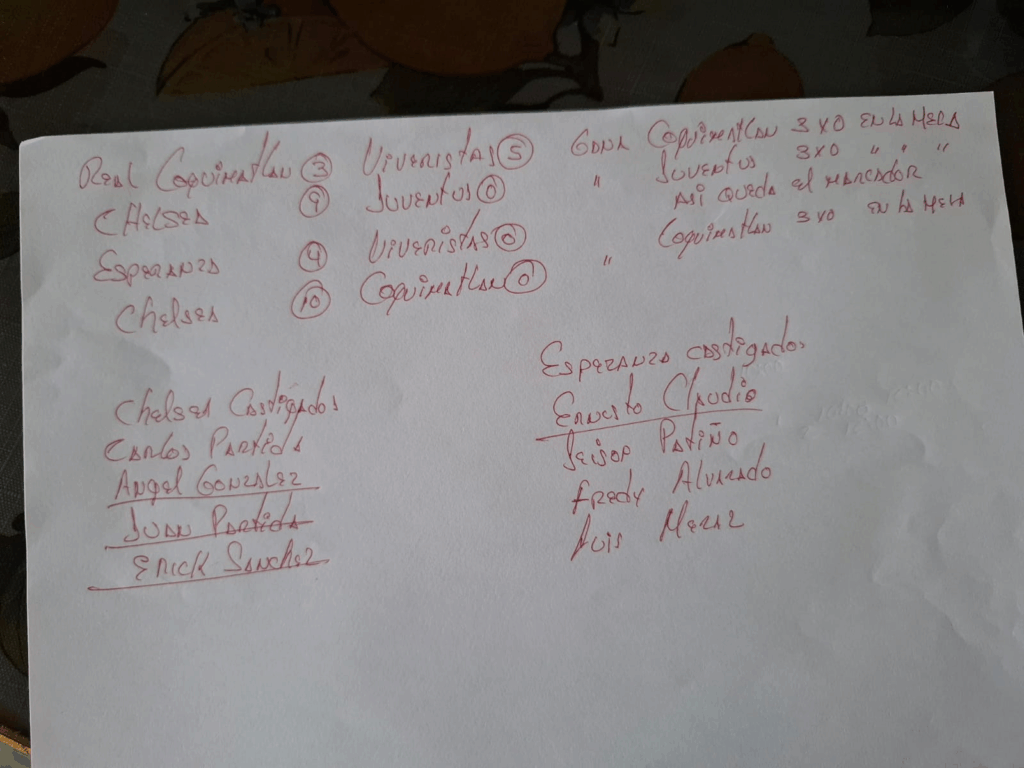 Real Coquimatlan 3 Viveristas 5 Gana Coquimatlan 3 x 0 en la mesa
Chelsea 9 Juventus 0 " Juventus 3 x 0 " " "
Asi queda el marcador
Esperanza 4 Viveristas 0
Chelsea 10 Coquimatlan 0 " Coquimatlan 3 x 0 en la mesa
Chelsea Castigados
Carlos Partida
Angel Gonzalez
Juan Partida
Erick Sanchez
Esperanza castigados
Ernesto Claudio
Patiño
Fredy Alvarado
Luis Meraz